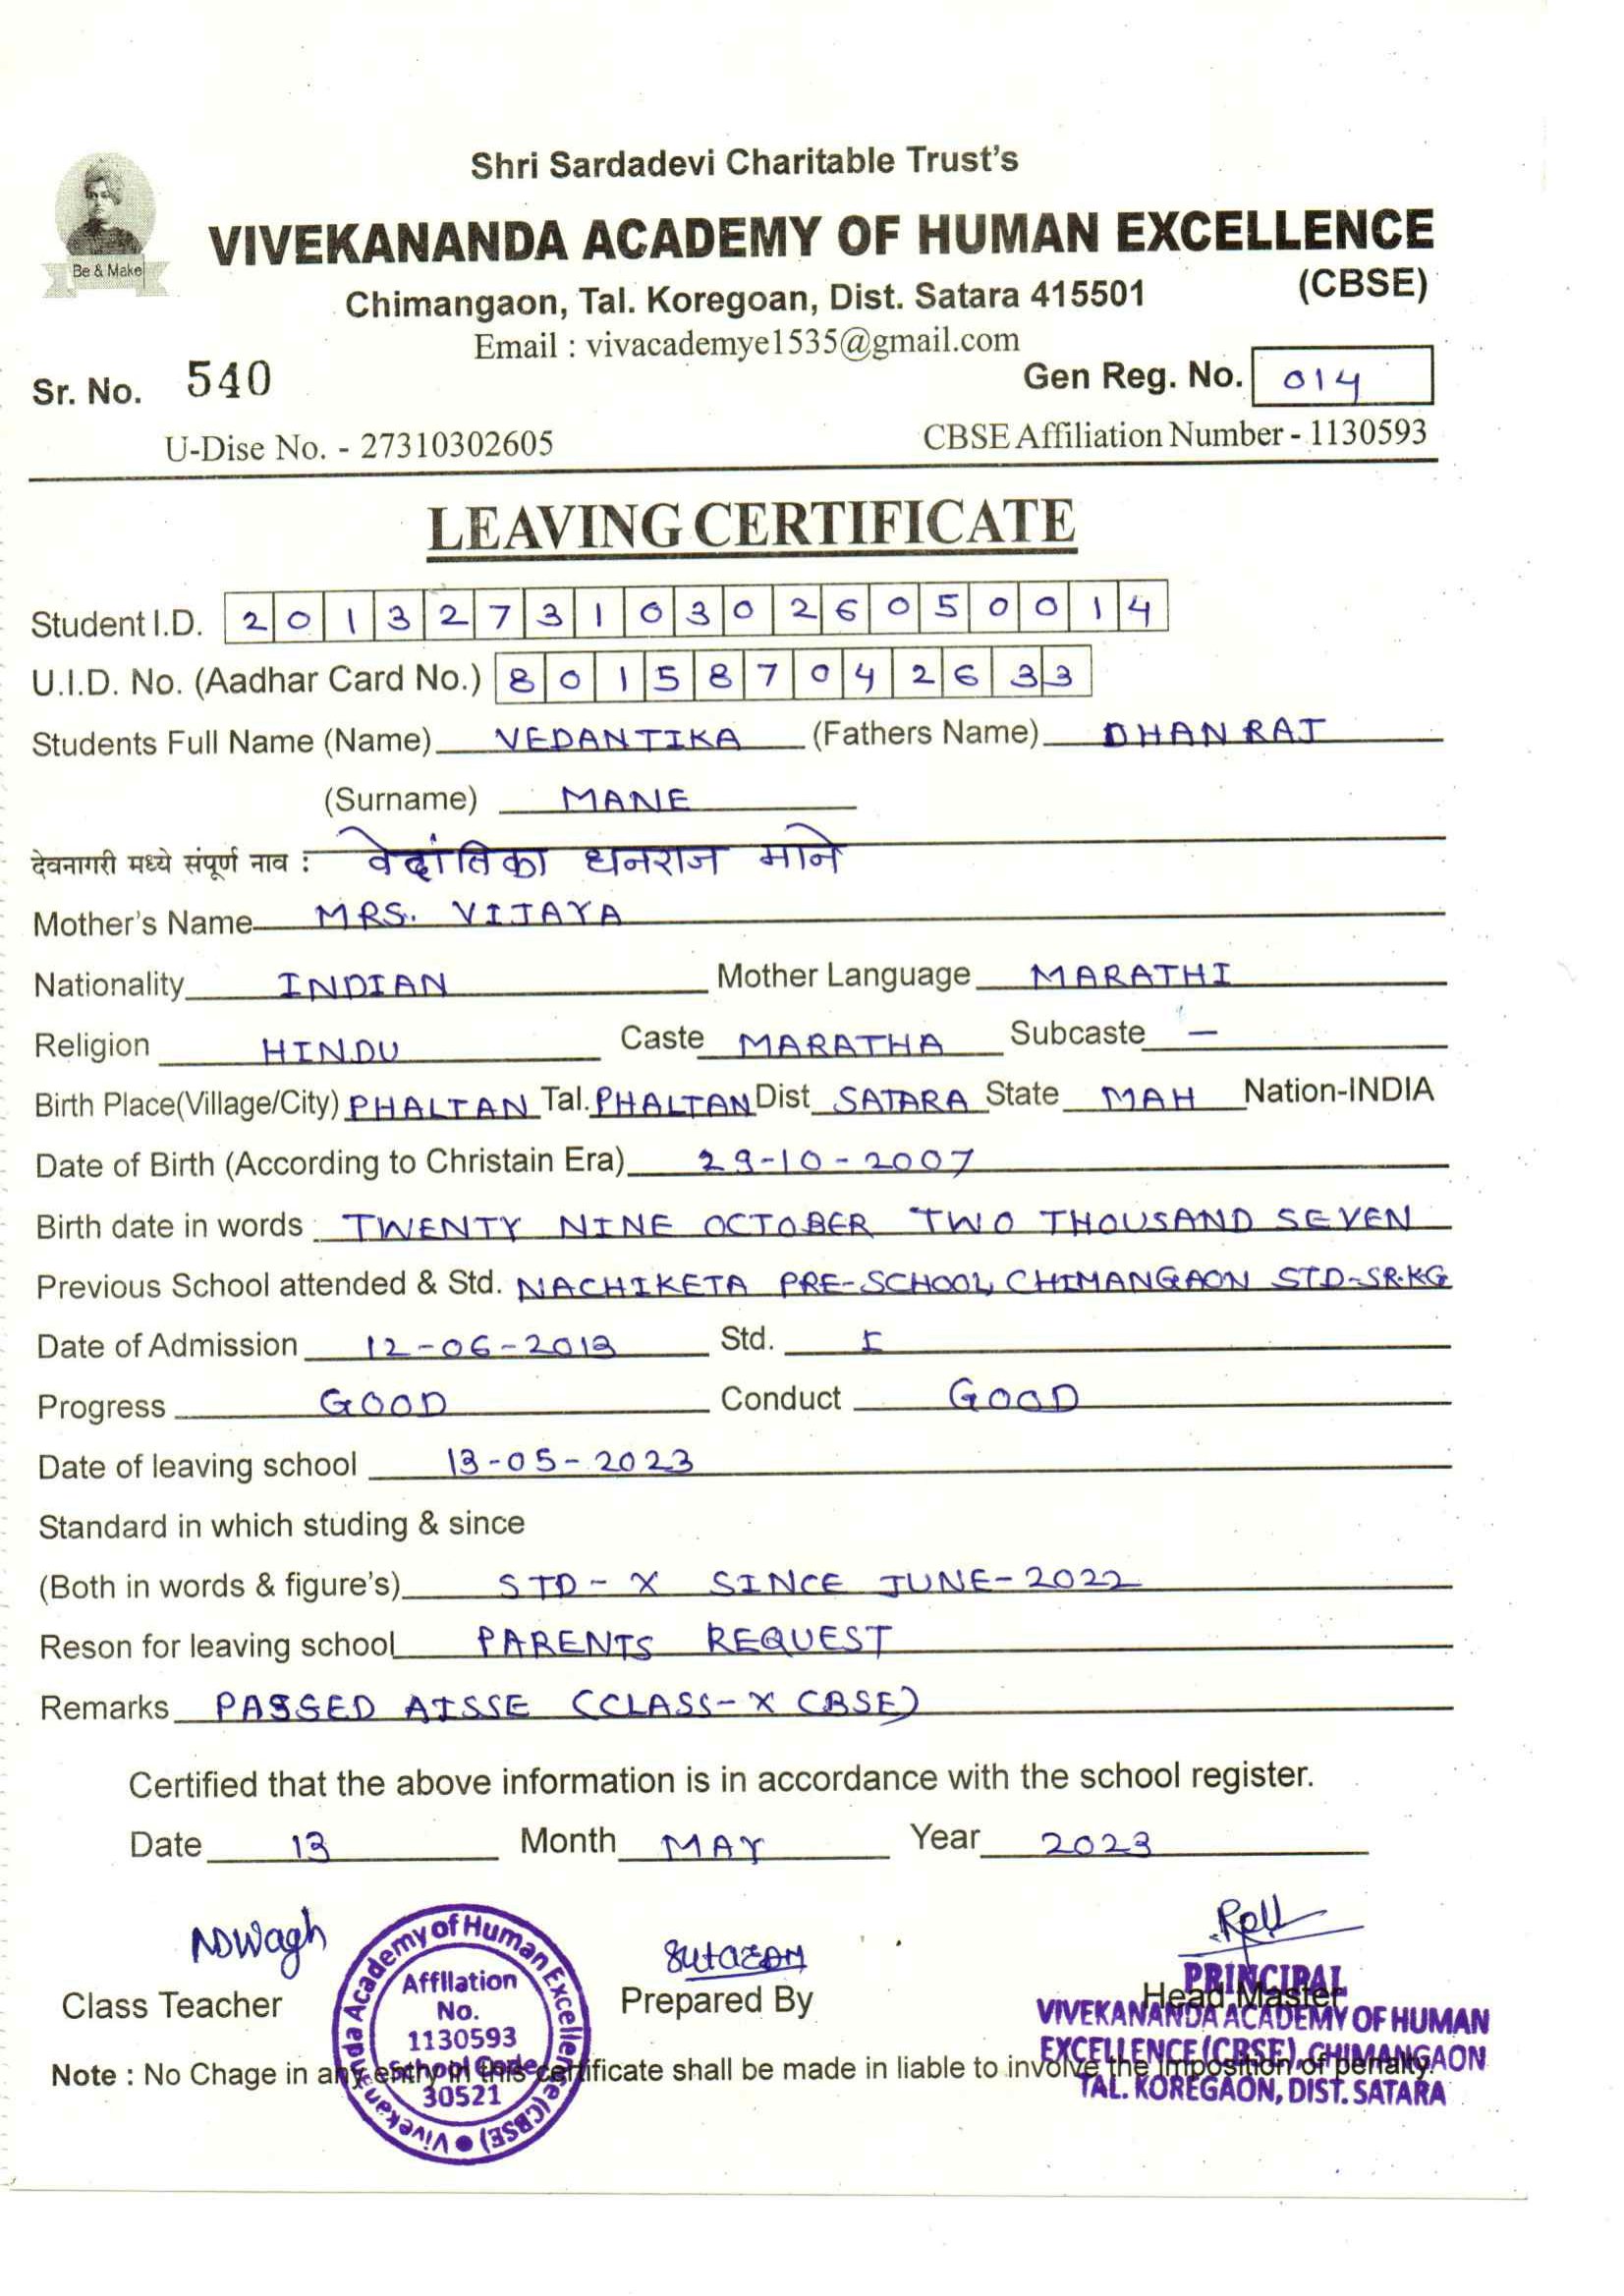 Shri Sardadevi Charitable Trust's
VIVEKANANDA ACADEMY OF HUMAN EXCELLENCE
(CBSE)
Be & Make
Chimangaon, Tal. Koregoan, Dist. Satara 415501
Email : vivacademye1535@gmail.com
Sr. No. 540 Gen Reg. No. 014
U-Dise No. - 27310302605 CBSE Affiliation Number - 1130593
LEAVING CERTIFICATE
Student I.D. 2013273103026050014
U.I.D. No. (Aadhar Card No.) 801587042633
Students Full Name (Name) VEDANTIKA (Fathers Name) DHANRAJ
(Surname) MANE
देवनागरी मध्ये संपूर्ण नाव : वेदांतिका धनराज माने
Mother's Name MRS. VIJAYA
Nationality INDIAN Mother Language MARATHI
Religion HINDU Caste MARATHA Subcaste —
Birth Place(Village/City) PHALTAN Tal. PHALTAN Dist SATARA State MAH Nation-INDIA
Date of Birth (According to Christain Era) 29-10-2007
Birth date in words TWENTY NINE OCTOBER TWO THOUSAND SEVEN
Previous School attended & Std. NACHIKETA PRE-SCHOOL, CHIMANGAON STD-SR.KG
Date of Admission 12-06-2013 Std. I
Progress GOOD Conduct GOOD
Date of leaving school 13-05-2023
Standard in which studing & since
(Both in words & figure's) STD - X SINCE JUNE-2022
Reson for leaving school PARENTS REQUEST
Remarks PASSED AISSE (CLASS-X CBSE)
Certified that the above information is in accordance with the school register.
Date 13 Month MAY Year 2023
NDWagh
Class Teacher Prepared By Head Master
Vivekananda Academy of Human Excellence (CBSE)
Affilation
No.
1130593
School Code
30521
PRINCIPAL
VIVEKANANDA ACADEMY OF HUMAN
EXCELLENCE (CBSE), CHIMANGAON
TAL. KOREGAON, DIST. SATARA
Note : No Chage in any enthy in this certificate shall be made in liable to involve the imposition of penalty.